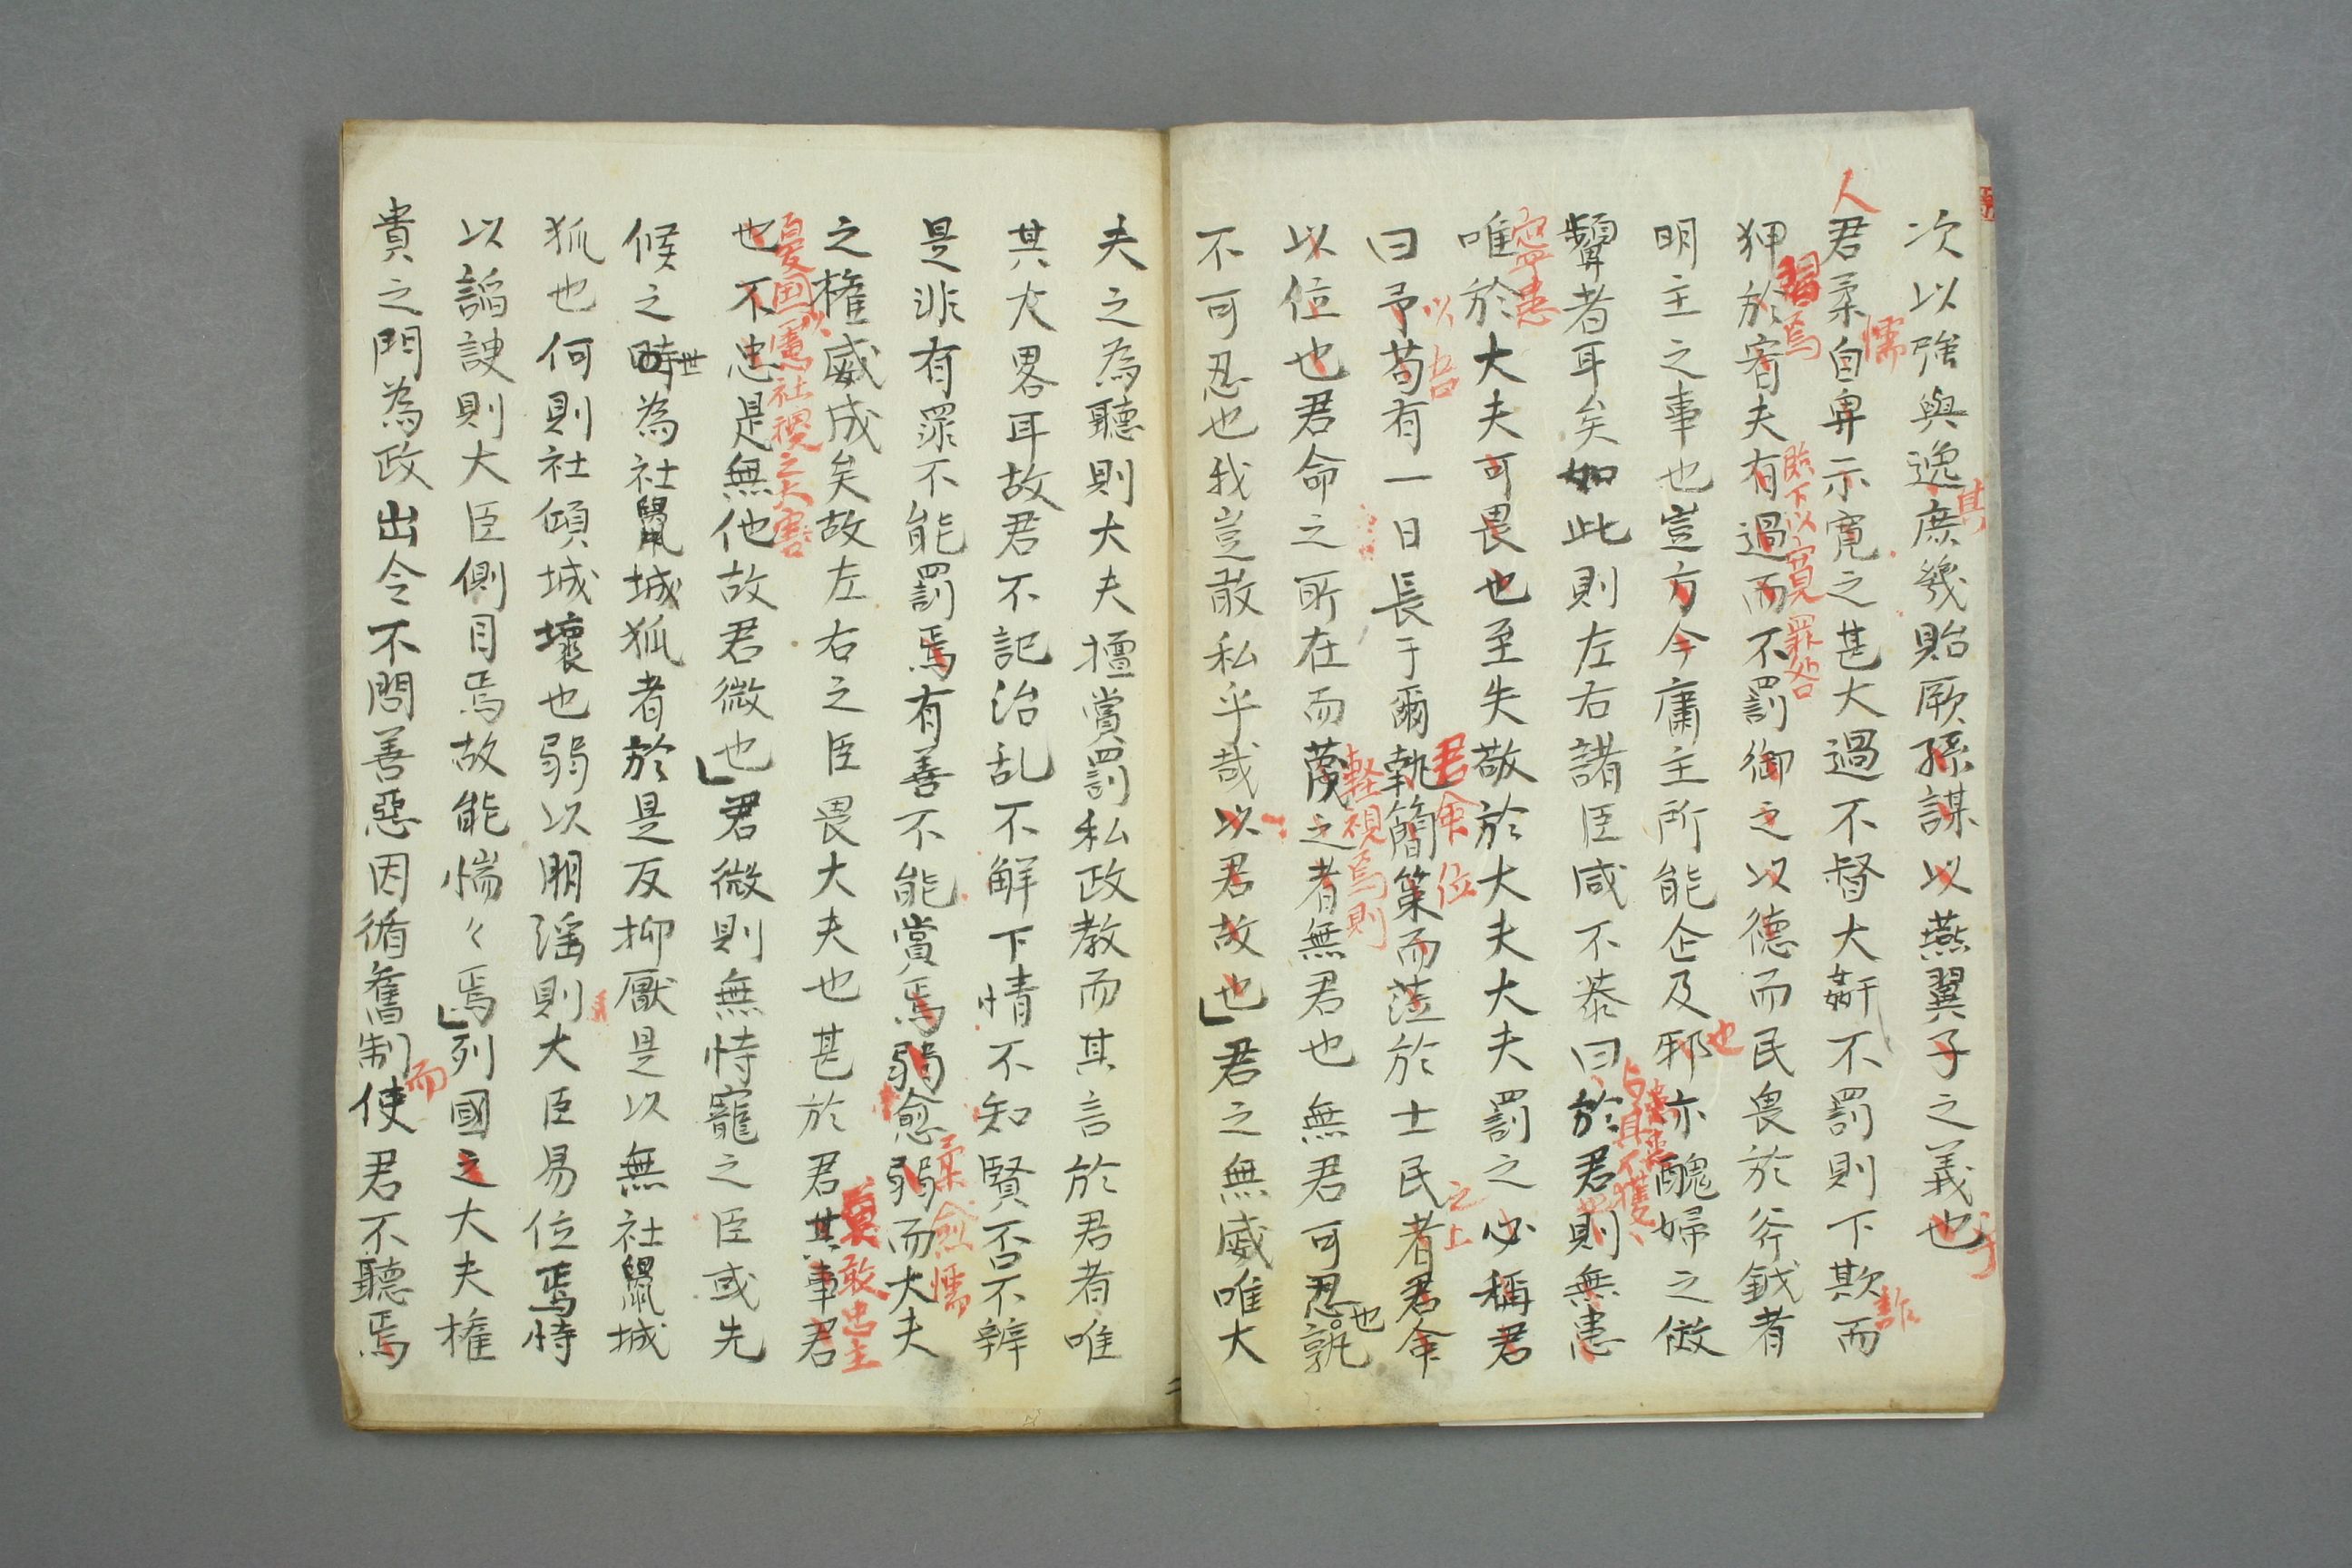 次以強與逸庶幾貽厥孫謀以燕翼子之義也
君柔自卑示寛之甚大過不督大姧不罰則下欺而
狎於宥夫有過而不罰御之以德而民畏於斧鉞者
明主之事也豈方今庸主所能企及邪亦醜婦之倣
顰者耳矣如此則左右諸臣咸不恭曰於君則無患
唯於大夫可畏也至失敬於大夫大夫罰之必稱君
曰予苟有一日長于爾執簡策而莅於士民者君命
以位也君命之所在而蔑之者無君也無君可忍也孰
不可忍也我豈敢私乎哉以君故也君之無威唯大
夫之為聽則大夫擅賞罰私政教而其言於君者唯
其大畧耳故君不記治乱不解下情不知賢否不辨
是非有罪不能罰焉有善不能賞焉弱愈弱而大夫
之権威成矣故左右之臣畏大夫也甚於君其事君
也不忠是無他故君微也君微則無恃寵之臣或先
候之時世為社鼠城狐者於是反抑厭是以無社鼠城
狐也何則社傾城壞也弱以朋淫則大臣易位焉恃
以諂諛則大臣側目焉故能惴々焉列國之大夫権
貴之門為政出令不問善惡因循舊制使君不聽焉
人
懦
其
詐
習焉
貽下以寛罪咎
也
寧患
以吾
君命位
之上
軽視焉則
柔愈懦
莫敢忠主
憂国家以社稷之大害
而